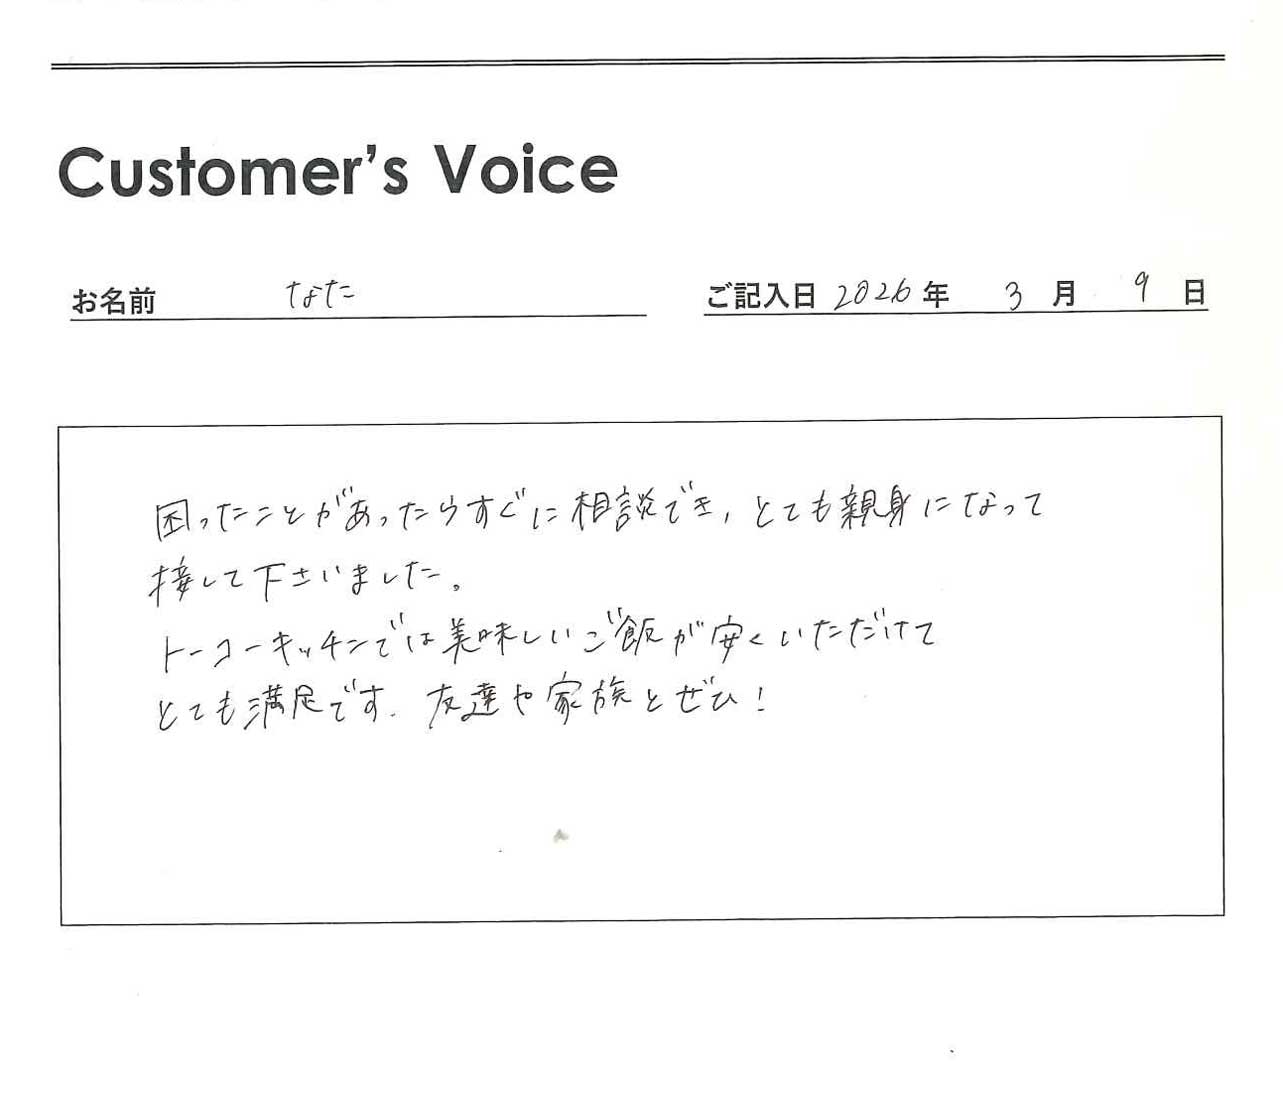 Customer's Voice
お名前 なた
ご記入日 2026年 3月 9日
困ったことがあったらすぐに相談でき、とても親身になって
接して下さいました。
トーコーキッチンでは美味しいご飯が安くいただけて
とても満足です。友達や家族とぜひ！